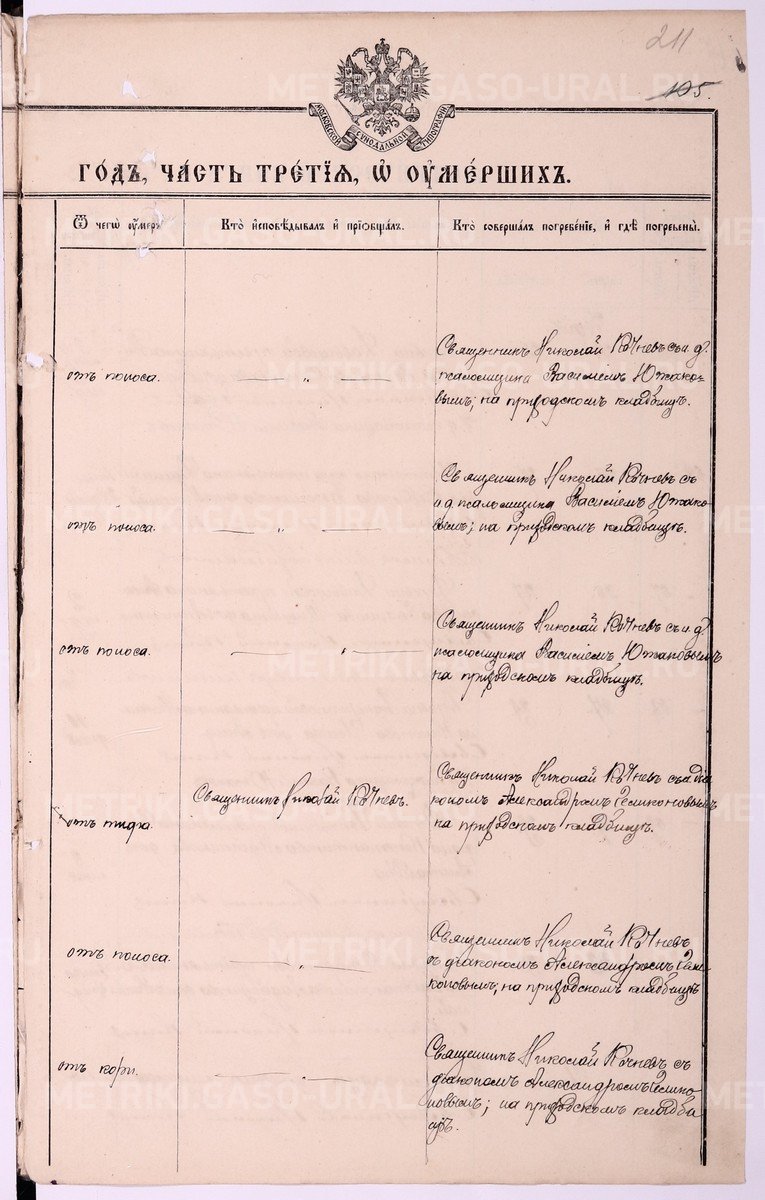 211
105.
МОСКОВСКОЙ СѴНОДАЛЬНОЙ ТИПОГРАФІИ
ГОДЪ, ЧАСТЬ ТРЕТІЯ, Ѡ ОУМЕРШИХЪ.
Ѿ чегѡ оумеръ
Кто исповѣдывалъ и пріобщалъ.
Кто совершалъ погребеніе, и гдѣ погребены.
отъ поноса.
— „ —
Священникъ Николай Кочневъ съ и. д.
псаломщика Василіемъ Южако-
вымъ; на приходскомъ кладбищѣ.
отъ поноса.
— „ —
Священникъ Николай Кочневъ съ
и д псаломщика Василіемъ Южако-
вымъ; на приходскомъ кладбищѣ.
отъ поноса.
— „ —
Священникъ Николай Кочневъ съ и. д.
псаломщика Василіемъ Южаковымъ
на приходскомъ кладбищѣ.
отъ тифа.
Священникъ Николай Кочневъ.
Священникъ Николай Кочневъ съ діа
кономъ Александромъ
на приходскомъ кладбищѣ.
отъ поноса.
— „ —
Священникъ Николай Кочневъ
съ діакономъ Александромъ
коновымъ; на приходскомъ кладбищѣ
отъ кори.
— „ —
Священникъ Николай Кочневъ съ
діакономъ Александромъ
новымъ; на приходскомъ кладби
щѣ.
METRIKI.GASO-URAL.RU